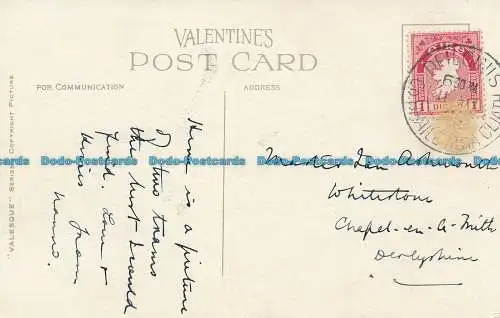 VALENTINES
POST CARD
FOR COMMUNICATION
ADDRESS
"VALESQUE" SERIES COPYRIGHT PICTURE
Here is a picture
of the trams
the best I could
find. Love &
Kisses from
Nanna.
Master Ian Ashworth
Whitestone
Chapel-en-le-Frith
Derbyshire
Dodo-Postcards Dodo-Postcards Dodo-Postcards Dodo-Postcards Dodo-Postcards Dodo-Postcards